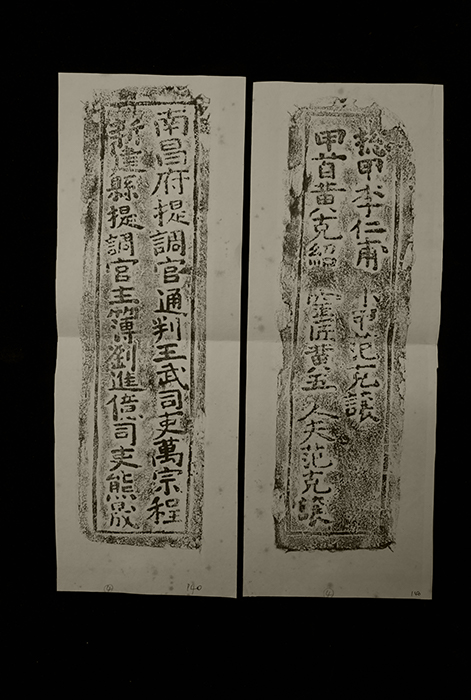 南昌府提調官通判王武司吏萬宗程
新建縣提調官主簿劉進司吏熊晟
140
總甲李仁甫 小甲范克讓
甲首黃克紹 窑匠黃五 人夫范克讓